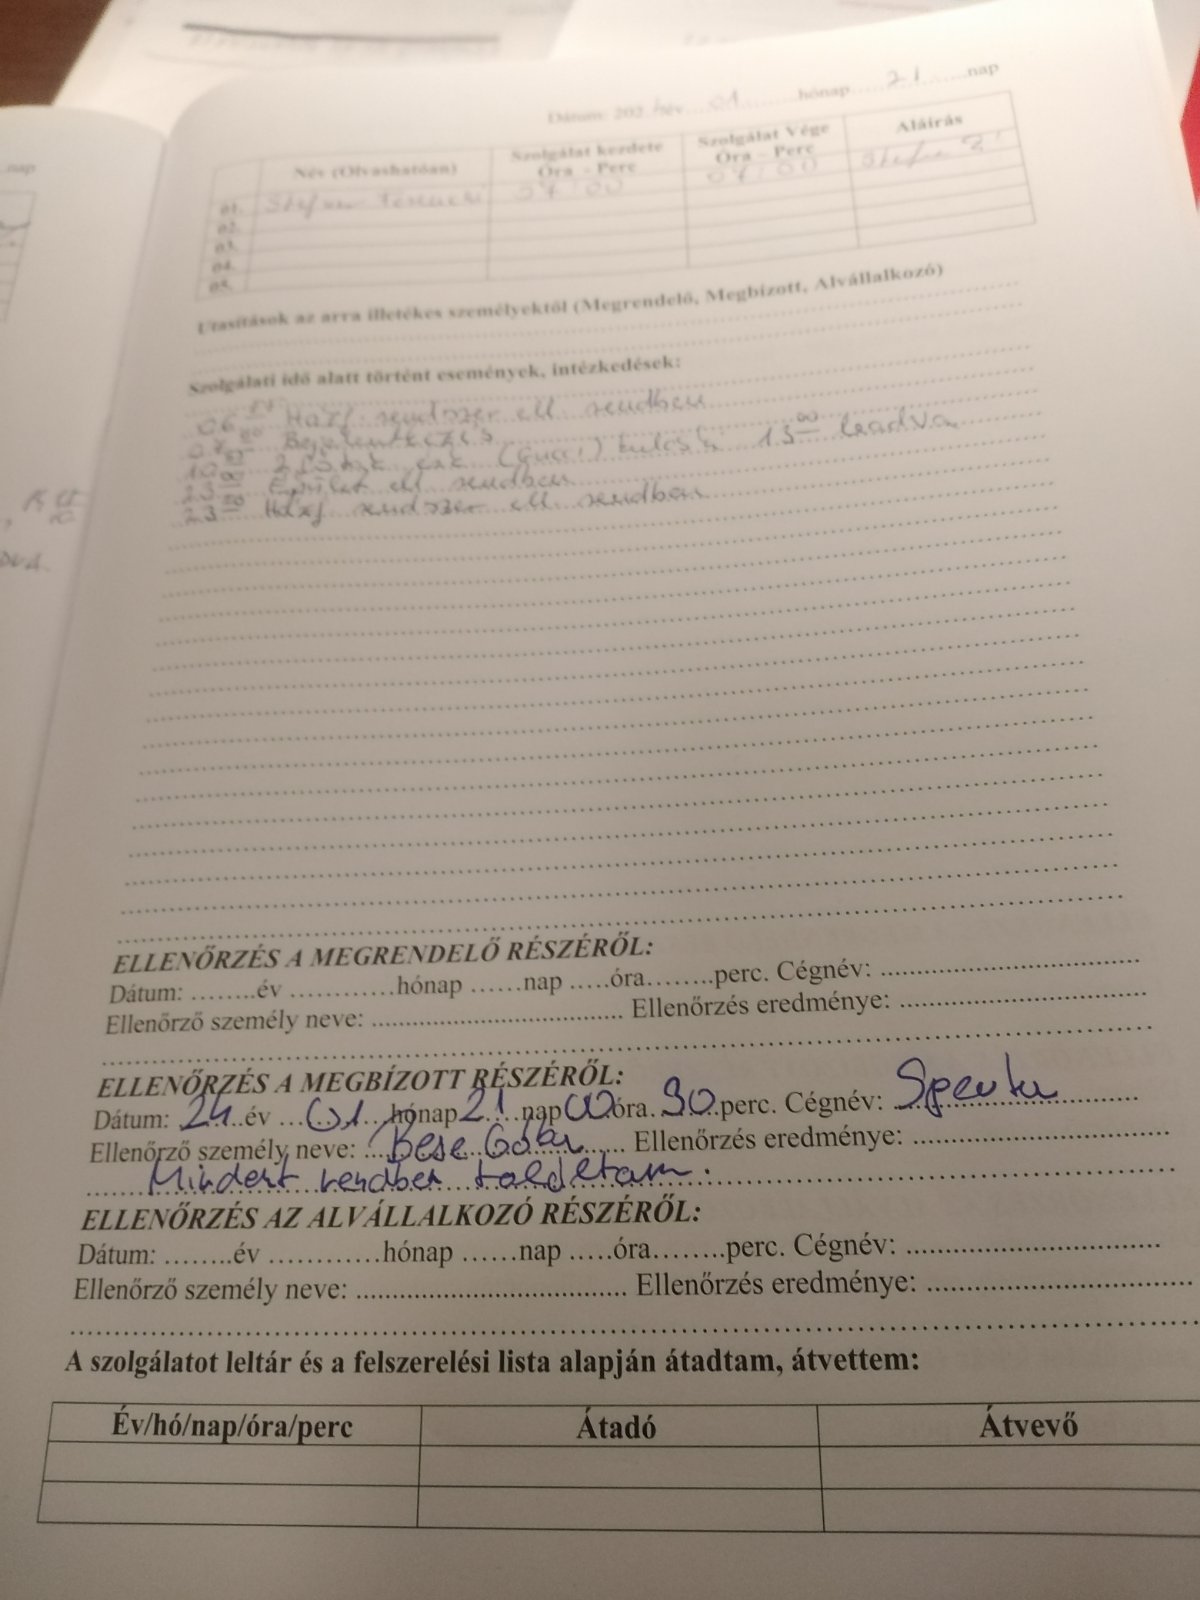 nap
Dátum: 202 év 01 hónap 21 nap
Név (Olvashatóan) Szolgálat kezdete Óra - Perc Szolgálat Vége Óra - Perc Aláírás
01. Stefan 07:00 07:00
02.
03.
04.
05.
Utasítások az arra illetékes személyektől (Megrendelő, Megbízott, Alvállalkozó)
Szolgálati idő alatt történt események, intézkedések:
06 rendszer ell rendben
Bejelentkezés
13 00 leadva
Épület ell rendben
23 00 rendszer ell rendben
ELLENŐRZÉS A MEGRENDELŐ RÉSZÉRŐL:
Dátum: ........év ............hónap ......nap .....óra........perc. Cégnév: ....................................
Ellenőrző személy neve: .................................... Ellenőrzés eredménye: ....................................
ELLENŐRZÉS A MEGBÍZOTT RÉSZÉRŐL:
Dátum: 24 év 01 hónap 21 nap 00 óra 30 perc. Cégnév:
Ellenőrző személy neve: Bese Gábor Ellenőrzés eredménye: ....................................
Mindent rendben találtam.
ELLENŐRZÉS AZ ALVÁLLALKOZÓ RÉSZÉRŐL:
Dátum: ........év ............hónap ......nap .....óra........perc. Cégnév: ....................................
Ellenőrző személy neve: .................................... Ellenőrzés eredménye: ....................................
A szolgálatot leltár és a felszerelési lista alapján átadtam, átvettem:
Év/hó/nap/óra/perc Átadó Átvevő